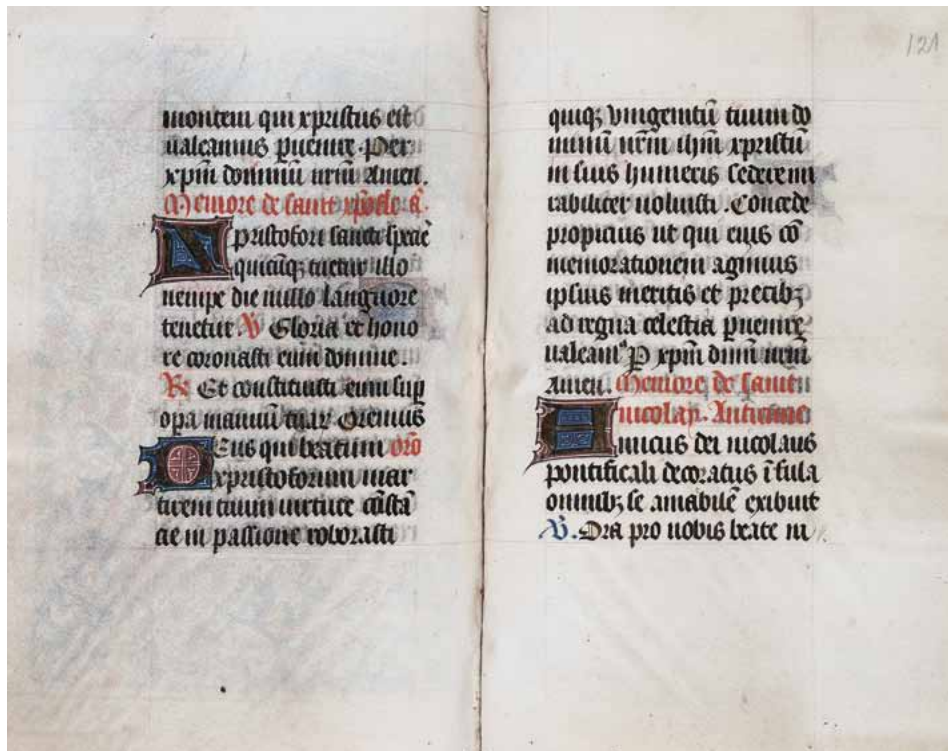 montem qui xpristus est
ualeamus p̲uenire . Per
xp̄m dominū nr̄m Amen .
Memore de saint xp̄ofle a᷑.
Xpristofori sancti specie᷑
quicūq; tuetur illo
nempe die nullo languore
tenetur . V Gloria et hono
re coronasti eum domine .
R Et constituisti eum sup
opa manuū tuar Oremus
Deus qui beatum orō
xpristoforum mar
tirem tuum uirtute cōstā
cie in passione roborasti
121
quiq; vnigenitū tuum do
minū nr̄m ihm̄ xpristū
in suis humeris sedere mi
rabiliter uoluisti . Concede
propicius ut qui eius cō
memorationem agimus
ipsius meritis et precib;
ad regna celestia p̲uenire
ualeam᷒ P̲ xp̄m dn̄m nr̄m
Amen . Memore de saint
nicolay . Anticene
Amicus dei nicolaus
pontificali decoratus ī fula
omnib; se amabilē exibuit
V . Ora pro nobis beate ni